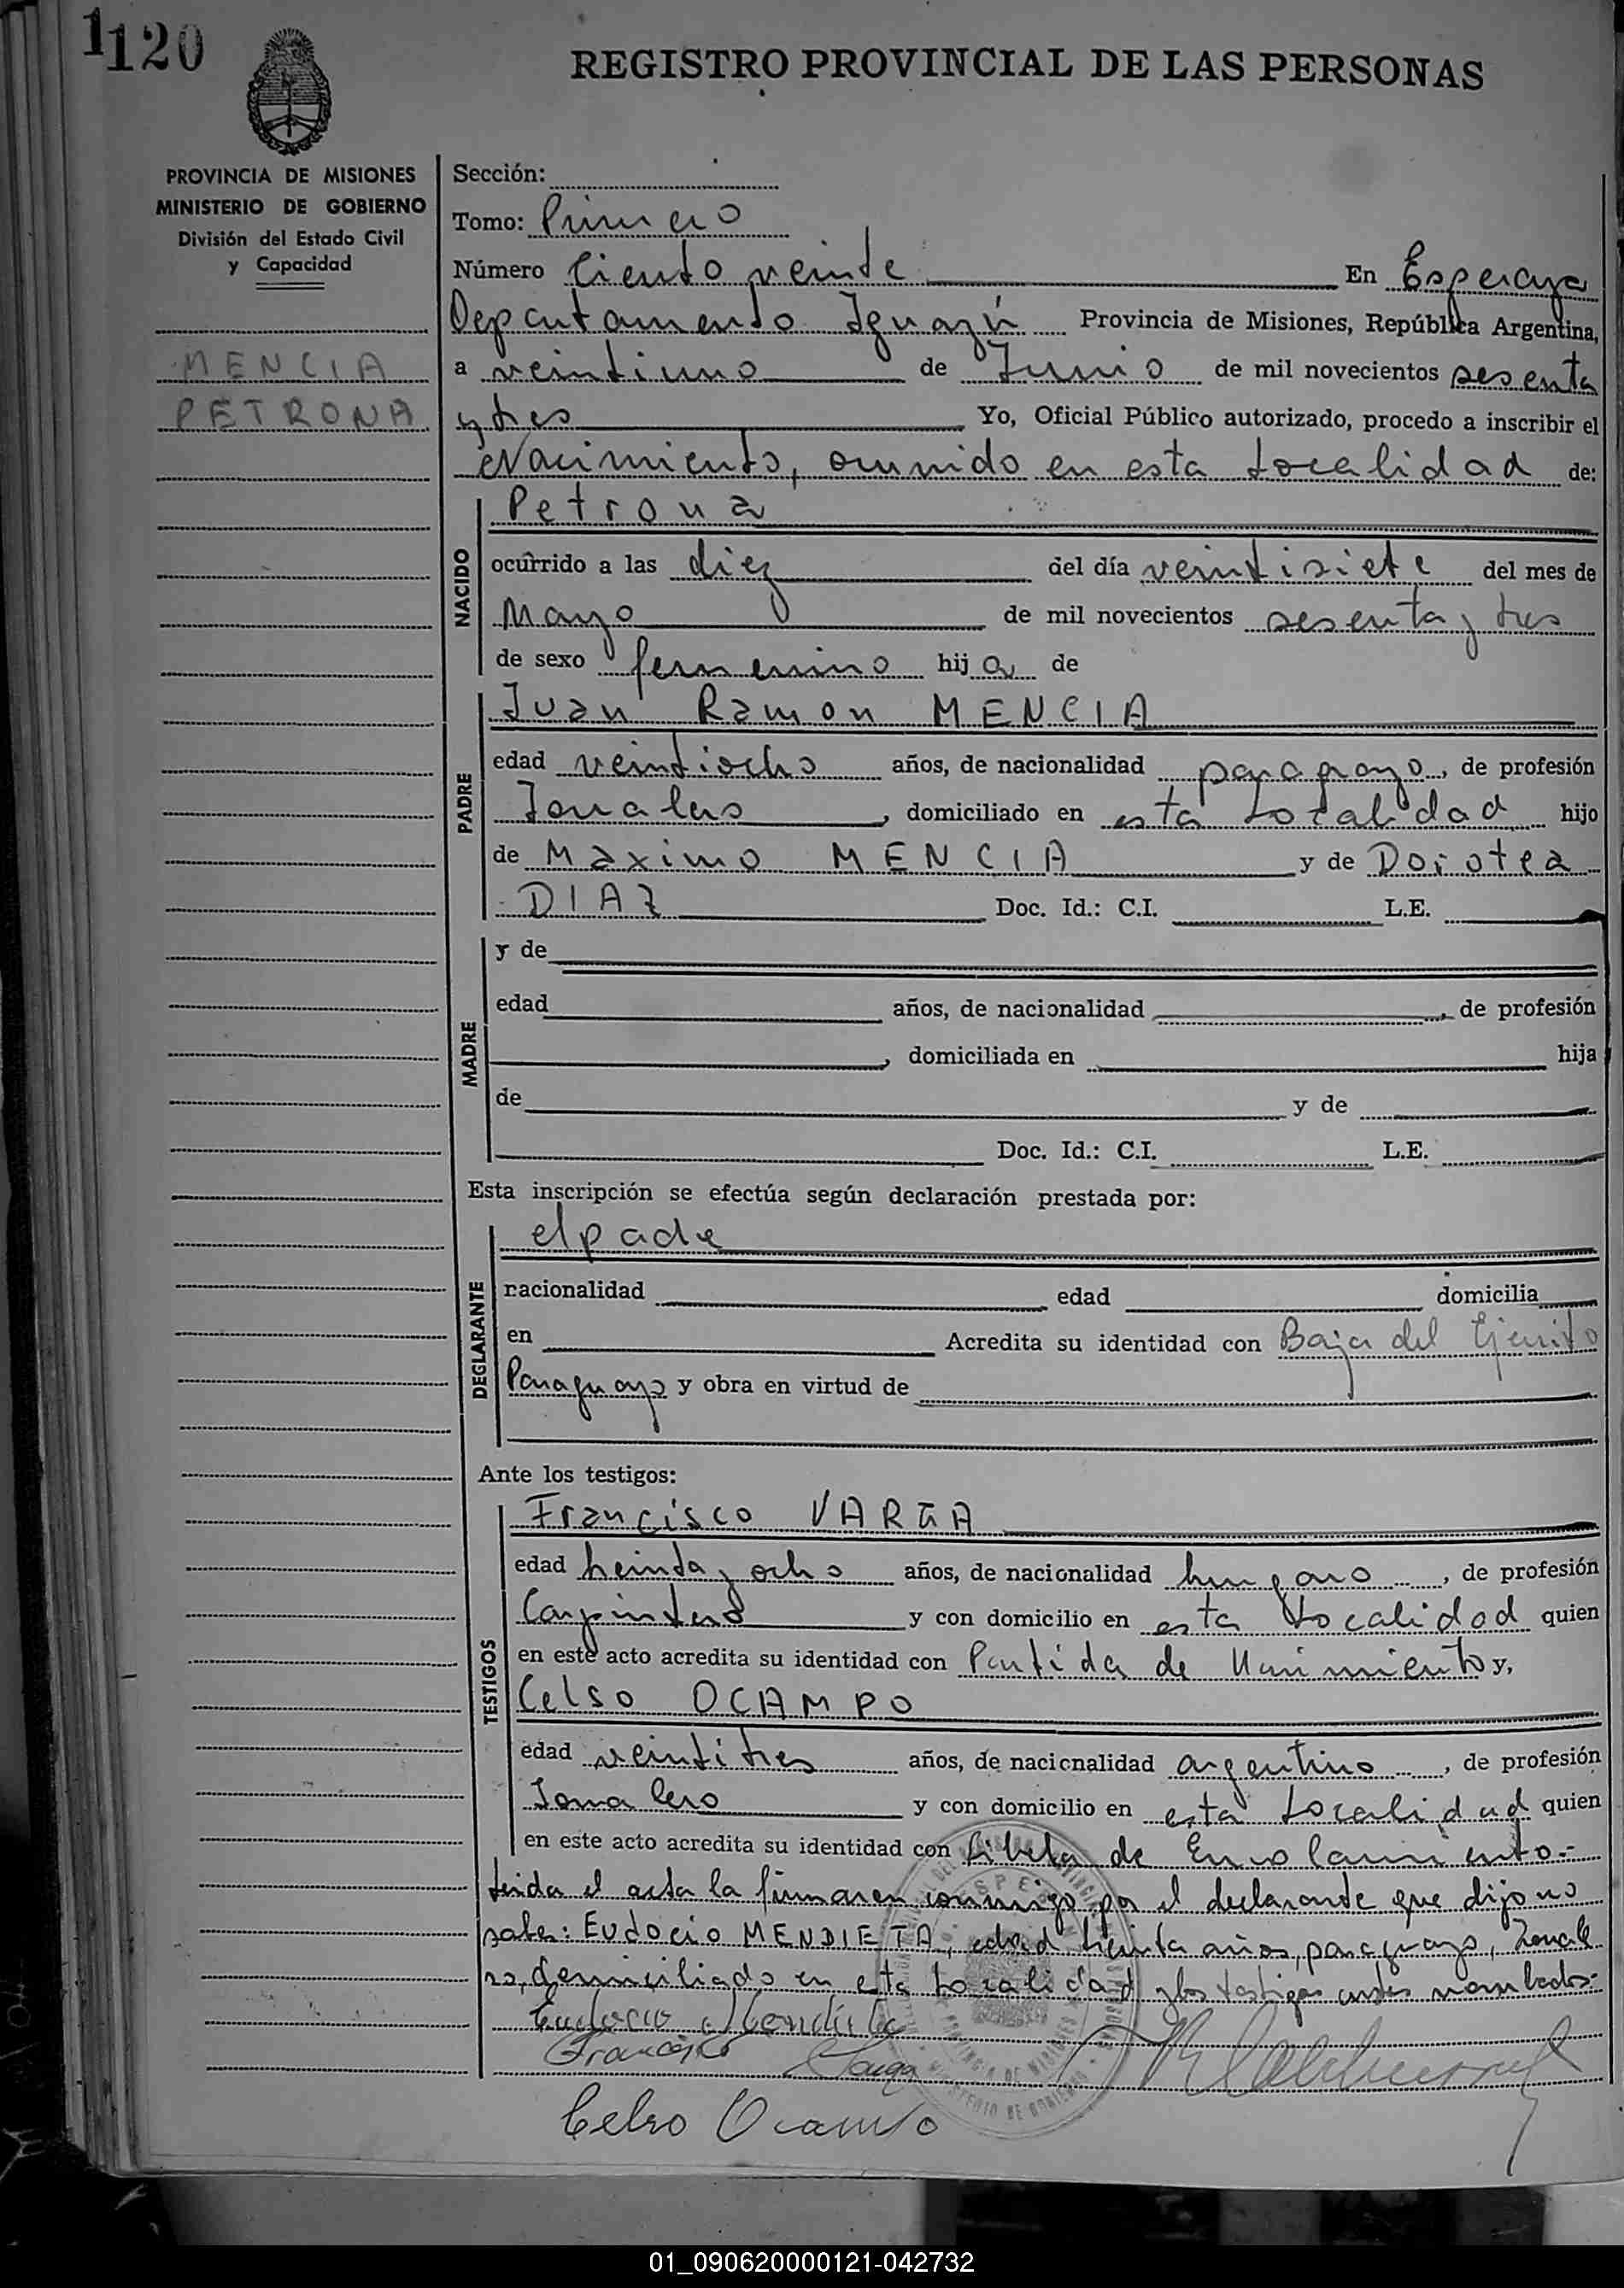 1120
REGISTRO PROVINCIAL DE LAS PERSONAS
PROVINCIA DE MISIONES
MINISTERIO DE GOBIERNO
División del Estado Civil
y Capacidad
MENCIA
PETRONA
Sección:
Tomo: Primero
Número Ciento veinte En Esperaza
Departamento Iguazú Provincia de Misiones, República Argentina,
a veintiuno de Junio de mil novecientos sesenta
y tres Yo, Oficial Público autorizado, procedo a inscribir el
Nacimiento, ocurrido en esta Localidad de:
NACIDO
Petrona
ocurrido a las diez del día veintisiete del mes de
Mayo de mil novecientos sesenta y tres
de sexo femenino hija de
PADRE
Juan Ramon MENCIA
edad veintiocho años, de nacionalidad paraguayo, de profesión
Jornalero, domiciliado en esta Localidad hijo
de Maximo MENCIA y de Dorotea
DIAZ Doc. Id.: C.I. L.E.
MADRE
y de
edad años, de nacionalidad , de profesión
, domiciliada en hija
de y de
Doc. Id.: C.I. L.E.
Esta inscripción se efectúa según declaración prestada por:
DECLARANTE
el padre
nacionalidad edad domicilia
en Acredita su identidad con Baja del Ejercito
Paraguayo y obra en virtud de
Ante los testigos:
TESTIGOS
Francisco VARGA
edad treinta y ocho años, de nacionalidad hungaro, de profesión
Carpintero y con domicilio en esta Localidad quien
en este acto acredita su identidad con Partida de Nacimiento y,
Celso OCAMPO
edad veintitres años, de nacionalidad argentino, de profesión
Jornalero y con domicilio en esta Localidad quien
en este acto acredita su identidad con Libreta de Enrolamiento.-
Leida el acta la firmaron conmigo por el declarante que dijo no
saber: Eudocio MENDIETA, edad treinta años, paraguayo, Jornale
ro, domiciliado en esta Localidad y los testigos antes nombrados:-
Eudocio Mendieta
Francisco Varga
Celso Ocampo
01_090620000121-042732